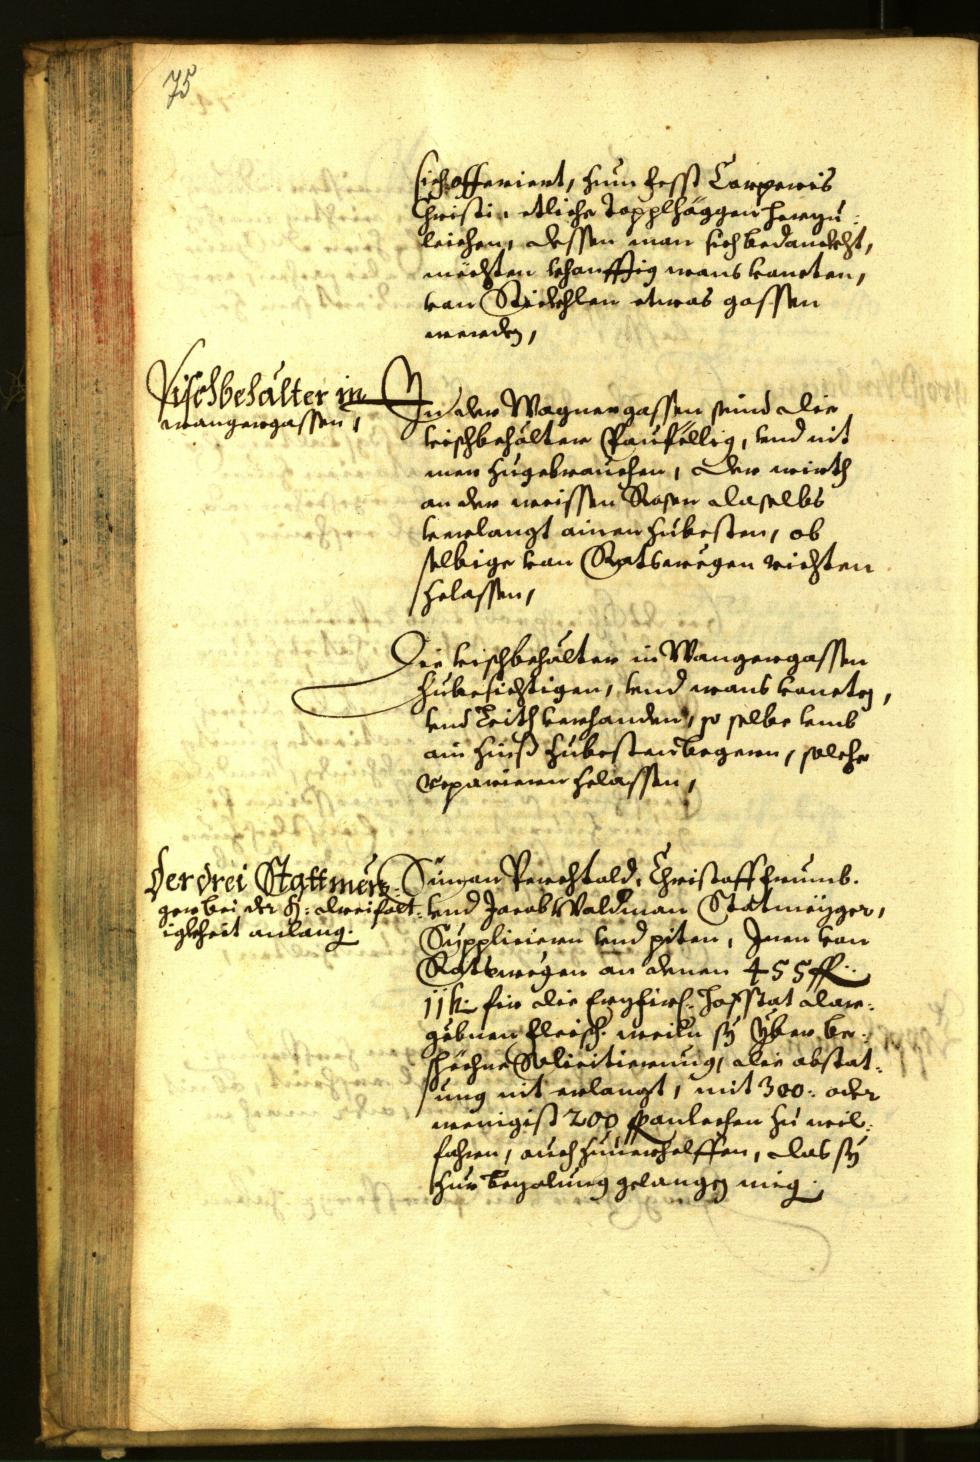 75
sich offeriert, zum Fesst Corporis
Christi, etliche Topplhäggen herzu-
leichen, dessen man sich bedanckht,
möchten khonfftig wans vonetten,
von Stückhlen etwas gossen
werden,
Vischbehalter in
wangergassen,
In der Wagnergassen seind die
vischbehälter Paufellig, vnd nit
mer zugebrauchen, der wirth
an der weissen Rosen daselbs
verlangt ainen zubesten, ob
selbige von Ratswegen richten
zelassen,
Die vischbehälter in Wangergassen
zubesichtigen, vnd wans vonetten,
vnd Leith verhanden, so selbe vmb
ain Zinß zubesten begern, solche
reparieren zelassen,
der drei Stattmez-
ger bei der H: dreifalt-
igkheit anlang.
Simon Perchtold, Christoff
vnd Jacob Waldman Statmezger,
Supplicieren vnd piten, Inen von
Ratswegen an denen 455 fl.
11 k: fir die Erzfirl: Hofstat dar-
gebnen Fleisch, weiln sy yber be-
schechne Solicitierung, die abstat-
ung nit erlangt, mit 300: oder
wenigist 200 fl Parlechen zu wil-
fahren, auch zuuerhelffen, das sy
zur Bezalung gelangen mig.